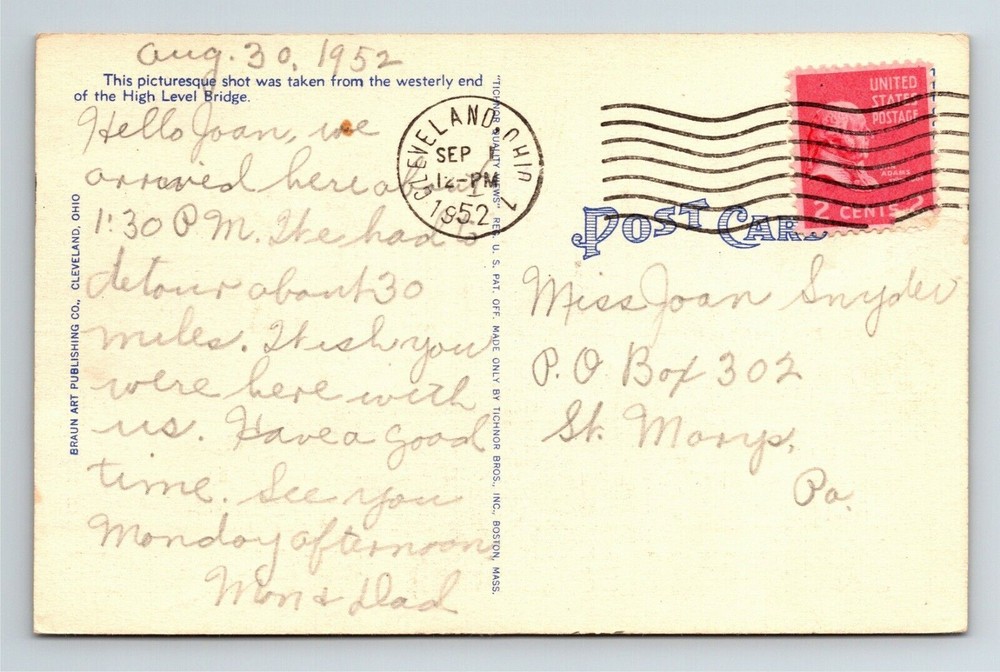 Aug. 30, 1952
This picturesque shot was taken from the westerly end
of the High Level Bridge.
Hello Joan, we
arrived here about
1:30 P.M. We had to
detour about 30
miles. Wish you
were here with
us. Have a good
time. See you
Monday afternoon
Mom & Dad
BRAUN ART PUBLISHING CO., CLEVELAND, OHIO
"TICHNOR QUALITY VIEWS" REG. U. S. PAT. OFF. MADE ONLY BY TICHNOR BROS., INC., BOSTON, MASS.
CLEVELAND, OHIO 1
SEP 1
12-PM
1952
UNITED
STATES
POSTAGE
ADAMS
2 CENTS 2
POST CARD
Miss Joan Snyder
P.O Box 302
St. Marys,
Pa.